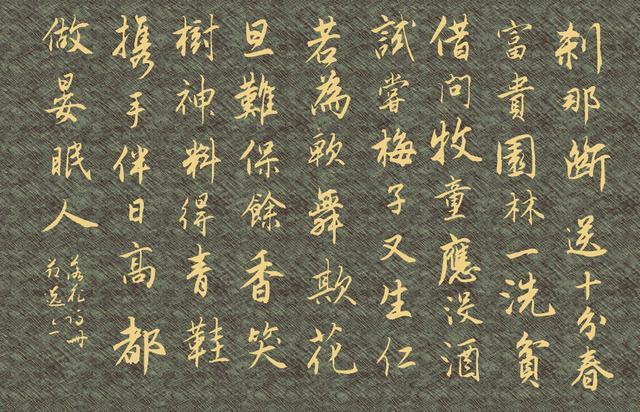 刹那斷送十分春
富貴園林一洗貧
借問牧童應没酒
試嘗梅子又生仁
若為軟舞欺花
旦難保餘香笑
樹神料得青鞋
携手伴日高都
做晏眠人
落花詩冊
選之一